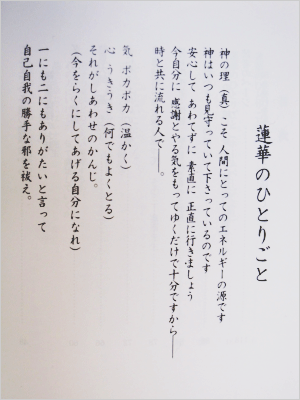 蓮華のひとりごと
神の理(真)こそ人間にとってのエネルギーの源です
神はいつも見守っていて下さっているのです
安心して あわてずに 素直に 正直に行きましょう
今自分に 感謝とやる気をもってゆくだけで十分ですから——
時と共に流れる人で——。
気 ポカポカ(温かく)
心 うきうき(何でもよくとる)
それがしあわせのかんじ。
(今をらくにしてあげる自分になれ)
一にも二にもありがたいと言って
自己自我の勝手な邪を祓え。